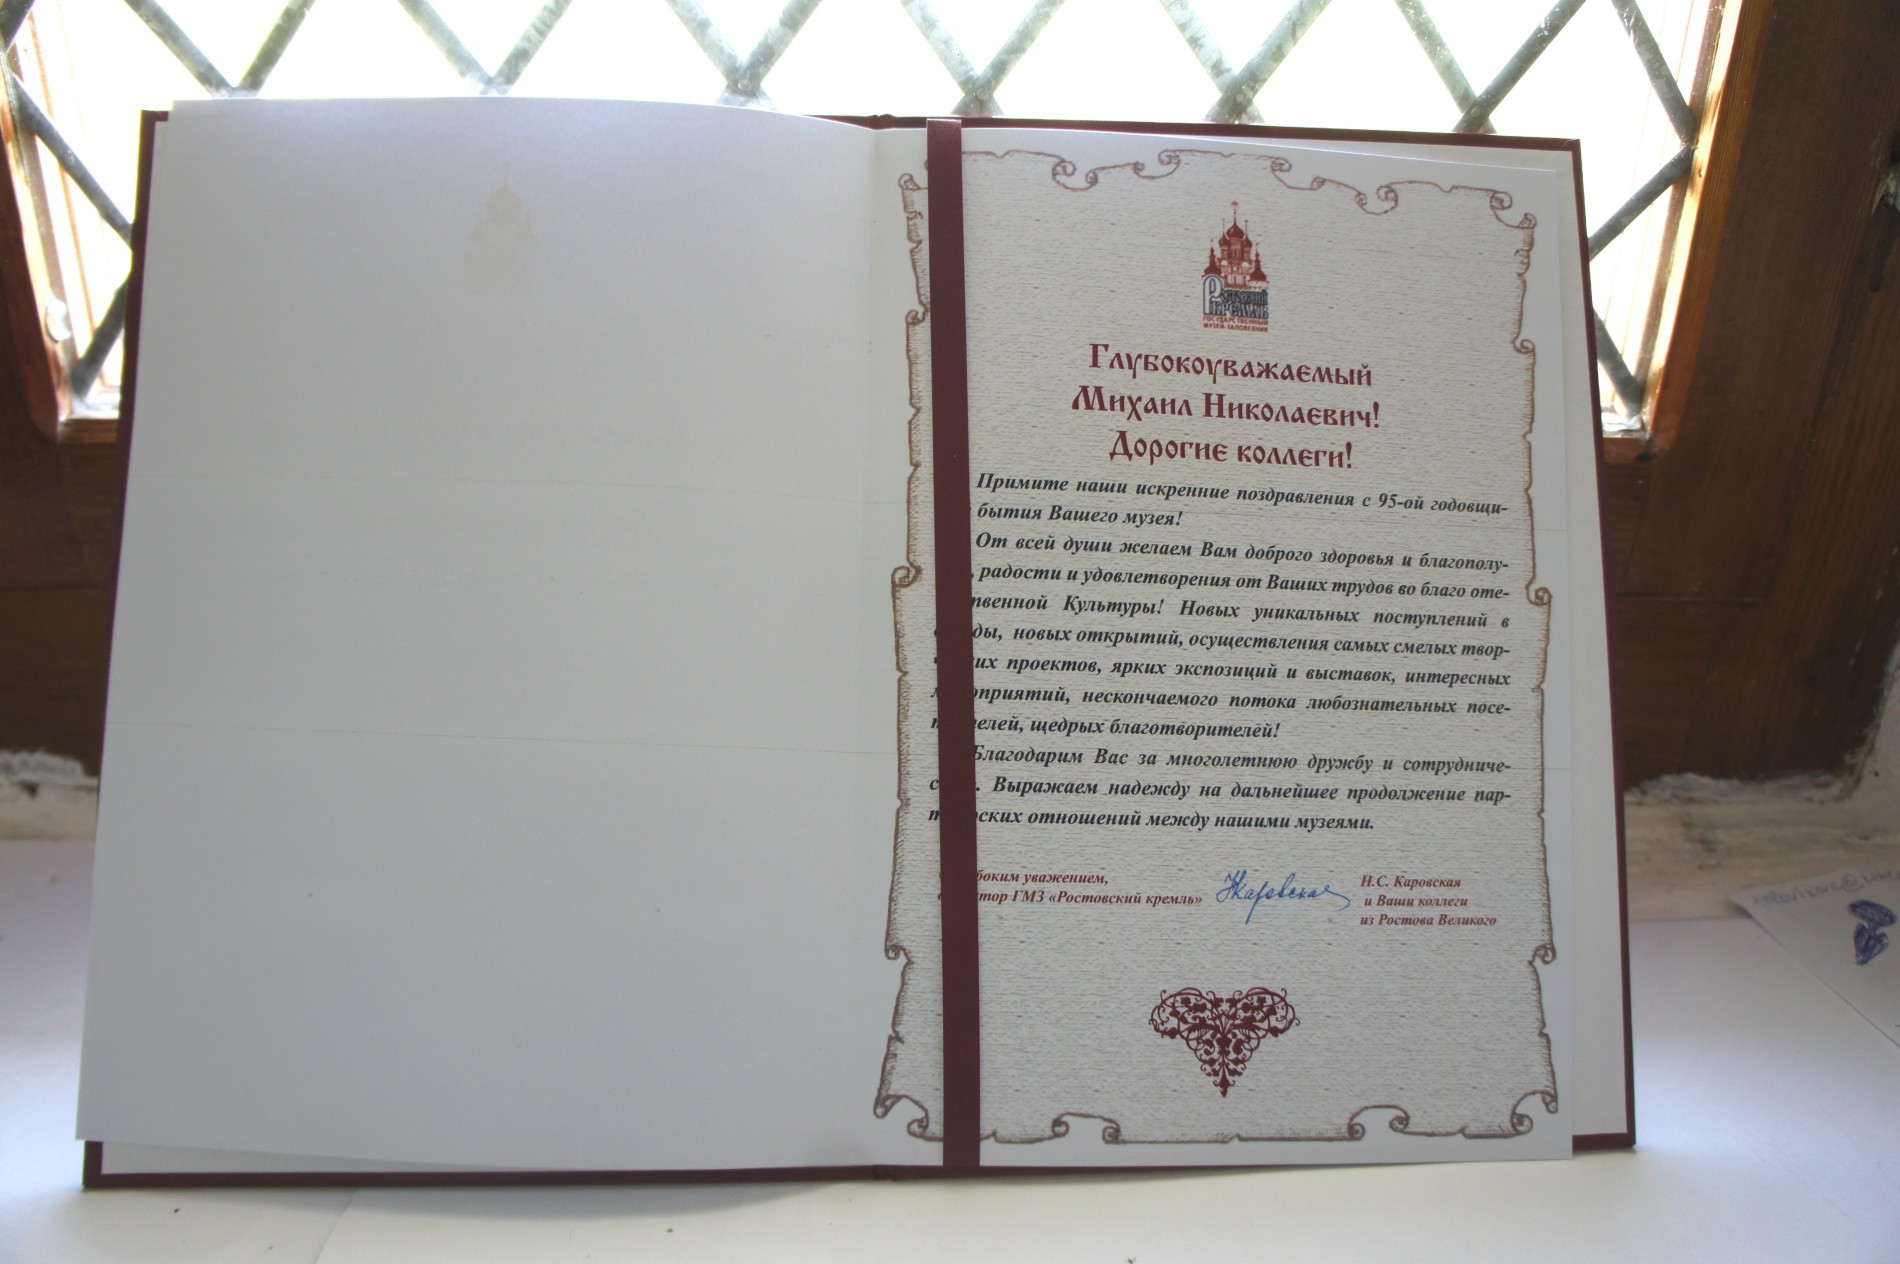 Ростовский
кремль
ГОСУДАРСТВЕННЫЙ
МУЗЕЙ-ЗАПОВЕДНИК
Глубокоуважаемый
Михаил Николаевич!
Дорогие коллеги!
Примите наши искренние поздравления с 95-ой годовщи-
бытия Вашего музея!
От всей души желаем Вам доброго здоровья и благополу-
, радости и удовлетворения от Ваших трудов во благо оте-
твенной Культуры! Новых уникальных поступлений в
ды, новых открытий, осуществления самых смелых твор-
ких проектов, ярких экспозиций и выставок, интересных
оприятий, нескончаемого потока любознательных посе-
елей, щедрых благотворителей!
Благодарим Вас за многолетнюю дружбу и сотрудниче-
с . Выражаем надежду на дальнейшее продолжение пар-
т рских отношений между нашими музеями.
боким уважением,
ктор ГМЗ «Ростовский кремль»
Н.С. Каровская
и Ваши коллеги
из Ростова Великого